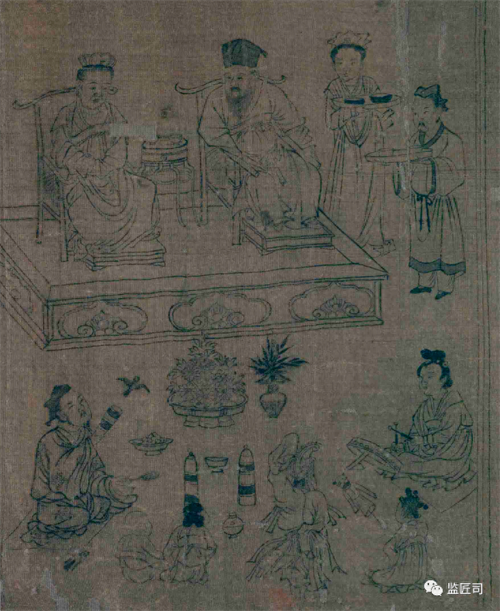 监匠司